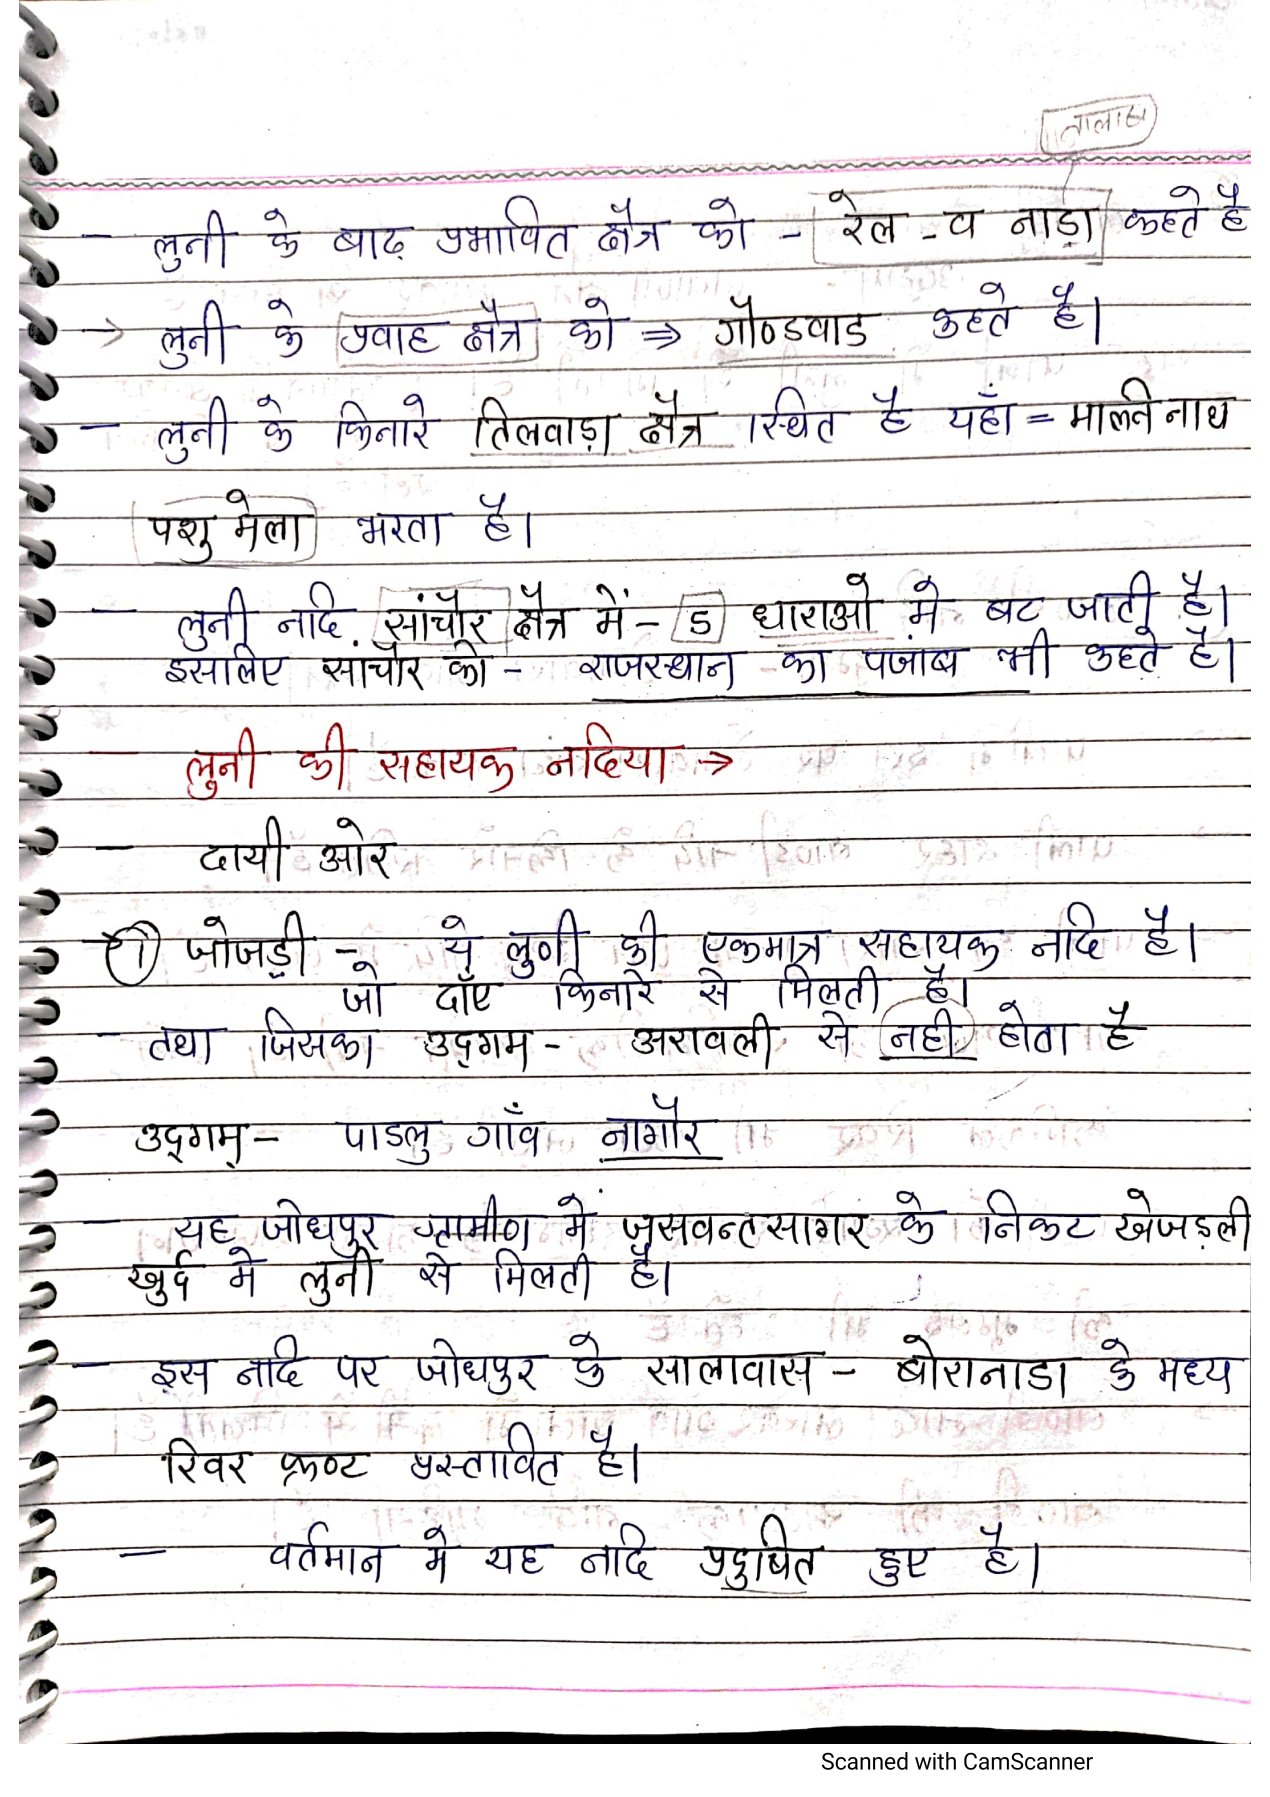 तालाब
- लुनी के बाढ़ प्रभावित क्षैत्र को - रेल - व नाड़ा कहते है
→ लुनी के प्रवाह क्षैत्र को ⇒ गौण्डवाड कहते है।
- लुनी के किनारे तिलवाड़ा क्षैत्र स्थित है यहाँ = मालनि नाथ
पशु मेला भरता है।
- लुनी नदि सांचौर क्षैत्र में - 5 धाराओ मे बट जाती है।
इसलिए सांचौर को - राजस्थान का पजांब भी कहते है।
- लुनी की सहायक नदिया →
- दायी ओर
① जोजड़ी - ये लुणी की एकमात्र सहायक नदि है।
जो दाँए किनारे से मिलती है।
- तथा जिसका उद्गम - अरावली से नही होता है
उद्गम - पाडलु गाँव नागौर
- यह जोधपुर ग्रामीण में जसवन्तसागर के निकट खेजड़ली
खुर्द मे लुनी से मिलती है।
- इस नदि पर जोधपुर के सालावास - बोरानाडा के मध्य
रिवर फ्रण्ट प्रस्तावित है।
- वर्तमान मे यह नदि प्रदुषित हुए है।
Scanned with CamScanner